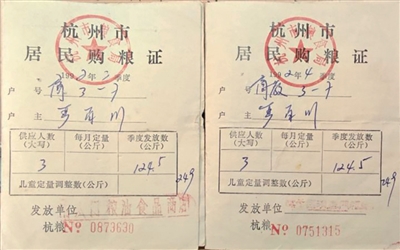 杭州市
居民购粮证
1992年2季度
户号 3-7
户主
供应人数(大写) 每月定量(公斤) 季度发放数(公斤)
3 124.5
249
儿童定量调整数(公斤)
发放单位 门粮油食品商店
杭粮 No 0873630
杭州市
居民购粮证
1992年4季度
户号 3-7
户主
供应人数(大写) 每月定量(公斤) 季度发放数(公斤)
3 124.5
249
儿童定量调整数(公斤)
发放单位
杭粮 No 0751315